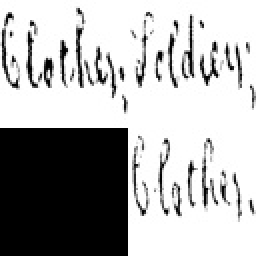 Clother, Soldier,
Clother.